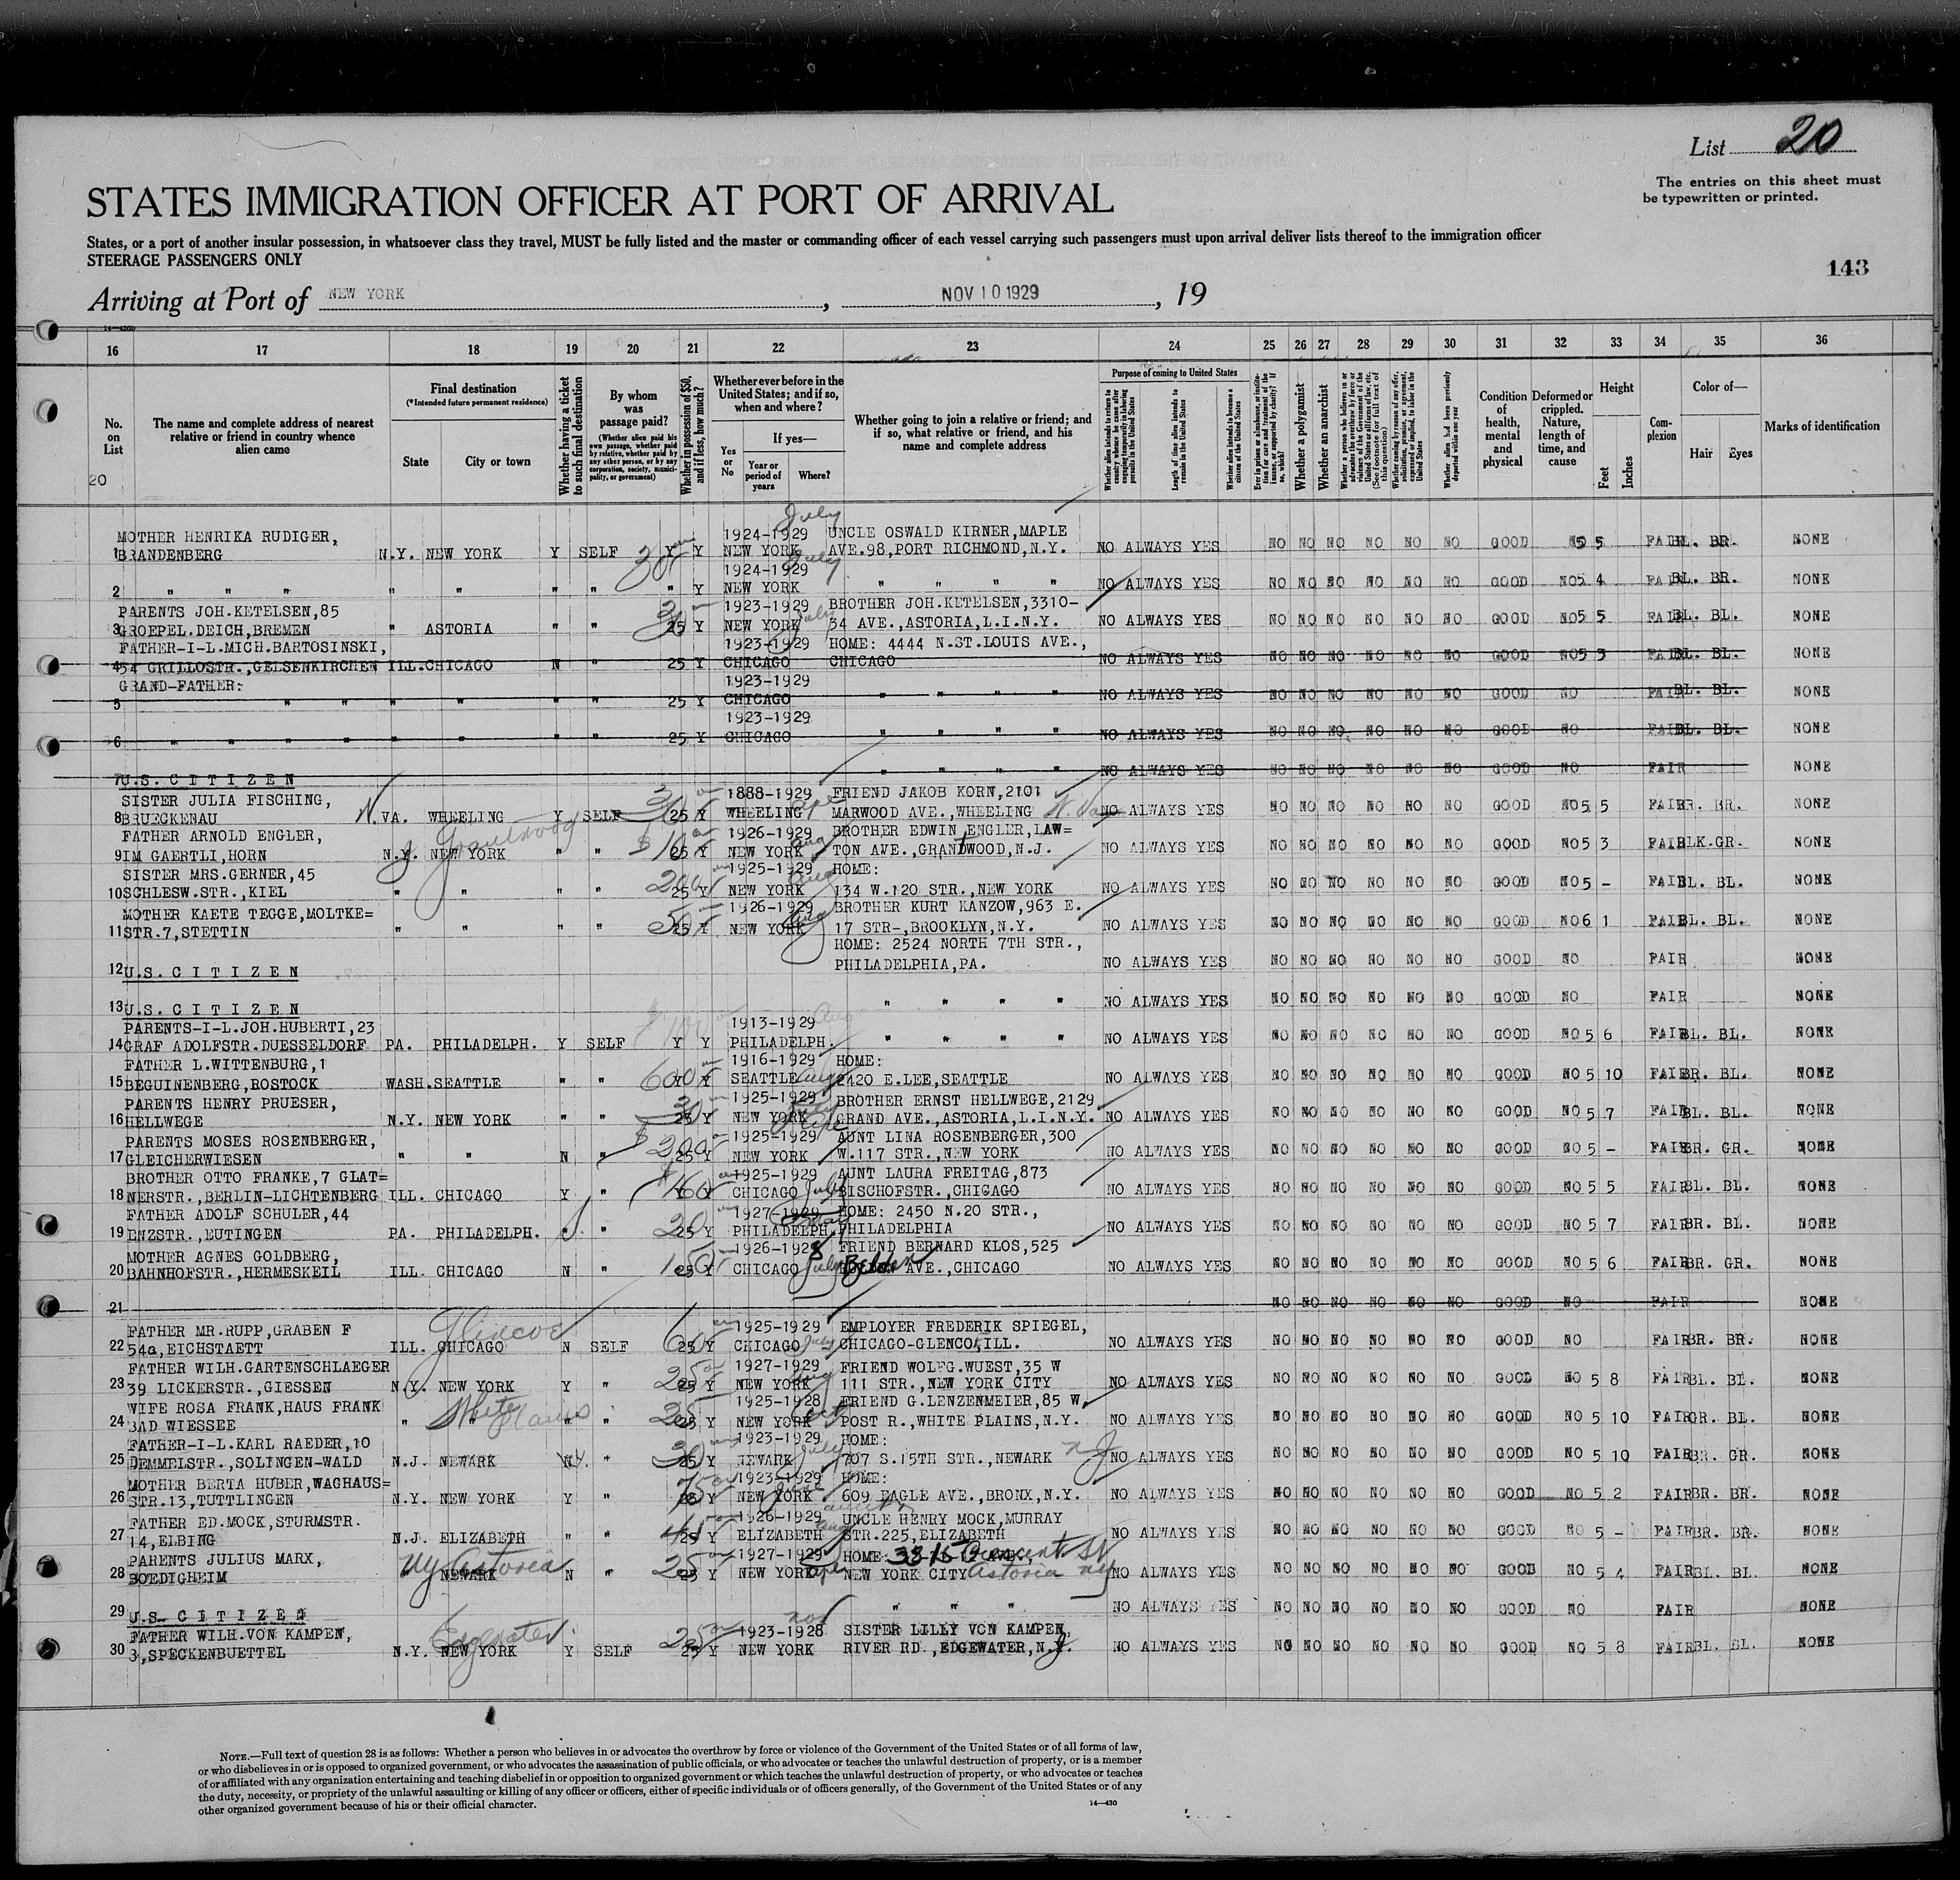 List 20
The entries on this sheet must
be typewritten or printed.
STATES IMMIGRATION OFFICER AT PORT OF ARRIVAL
States, or a port of another insular possession, in whatsoever class they travel, MUST be fully listed and the master or commanding officer of each vessel carrying such passengers must upon arrival deliver lists thereof to the immigration officer
STEERAGE PASSENGERS ONLY
143
Arriving at Port of NEW YORK, NOV 10 1929, 19
16 17 18 19 20 21 22 23 24 25 26 27 28 29 30 31 32 33 34 35 36
No. on List
20
The name and complete address of nearest relative or friend in country whence alien came
Final destination
(*Intended future permanent residence)
State City or town
Whether having a ticket to such final destination
By whom was passage paid?
(Whether alien paid his own passage, whether paid by relative, whether paid by any other person, or by any corporation, society, municipality, or government)
Whether in possession of $50, and if less, how much?
Whether ever before in the United States; and if so, when and where?
Yes or No
If yes—
Year or period of years Where?
Whether going to join a relative or friend; and if so, what relative or friend, and his name and complete address
Purpose of coming to United States
Length of time alien intends to remain in the United States
Whether alien intends to become a citizen of the United States
Whether a polygamist
Whether an anarchist
Condition of health, mental and physical
Deformed or crippled. Nature, length of time, and cause
Height
Feet Inches
Complexion
Color of—
Hair Eyes
Marks of identification
MOTHER HENRIKA RUDIGER, 1924-1929 July UNCLE OSWALD KIRNER,MAPLE
1 BRANDENBERG N.Y. NEW YORK Y SELF Y Y NEW YORK AVE.98,PORT RICHMOND,N.Y. NO ALWAYS YES NO NO NO NO NO NO GOOD NO 5 5 FAIR BL. BR. NONE
1924-1929 July
2 " " " " " " " Y NEW YORK " " " " NO ALWAYS YES NO NO NO NO NO NO GOOD NO 5 4 FAIR BL. BR. NONE
PARENTS JOH.KETELSEN,85 1923-1929 BROTHER JOH.KETELSEN,3310-
3 GROEPEL.DEICH,BREMEN " ASTORIA " " 25 Y NEW YORK July 34 AVE.,ASTORIA,L.I.N.Y. NO ALWAYS YES NO NO NO NO NO NO GOOD NO 5 5 FAIR BL. BL. NONE
FATHER-I-L.MICH.BARTOSINSKI, 1923-1929 HOME: 4444 N.ST.LOUIS AVE.,
4 54 GRILLOSTR.,GELSENKIRCHEN ILL.CHICAGO N " 25 Y CHICAGO CHICAGO NO ALWAYS YES NO NO NO NO NO NO GOOD NO 5 3 FAIR BL. BL. NONE
GRAND-FATHER: 1923-1929
5 " " " " " " 25 Y CHICAGO " " " " NO ALWAYS YES NO NO NO NO NO NO GOOD NO FAIR BL. BL. NONE
1923-1929
6 " " " " " " " " 25 Y CHICAGO " " " " NO ALWAYS YES NO NO NO NO NO NO GOOD NO FAIR BL. BL. NONE
7 U.S. C I T I Z E N " " " " NO ALWAYS YES NO NO NO NO NO NO GOOD NO FAIR NONE
SISTER JULIA FISCHING, 1888-1929 FRIEND JAKOB KORN,2101
8 BRUECKENAU W. VA. WHEELING Y SELF 25 Y WHEELING MARWOOD AVE.,WHEELING W. Va NO ALWAYS YES NO NO NO NO NO NO GOOD NO 5 5 FAIR BR. BR. NONE
FATHER ARNOLD ENGLER, 1926-1929 BROTHER EDWIN ENGLER,LAW=
9 IM GAERTLI,HORN N.Y. NEW YORK " " 25 Y NEW YORK Aug TON AVE.,GRANTWOOD,N.J. NO ALWAYS YES NO NO NO NO NO NO GOOD NO 5 3 FAIR BLK.GR. NONE
SISTER MRS.GERNER,45 1925-1929 HOME:
10 SCHLESW.STR.,KIEL " " " " 25 Y NEW YORK Aug 134 W.120 STR.,NEW YORK NO ALWAYS YES NO NO NO NO NO NO GOOD NO 5 - FAIR BL. BL. NONE
MOTHER KAETE TEGGE,MOLTKE= 1926-1929 BROTHER KURT KANZOW,963 E.
11 STR.7,STETTIN " " " " 25 Y NEW YORK Aug 17 STR-,BROOKLYN,N.Y. NO ALWAYS YES NO NO NO NO NO NO GOOD NO 6 1 FAIR BL. BL. NONE
HOME: 2524 NORTH 7TH STR.,
12 U.S. C I T I Z E N PHILADELPHIA,PA. NO ALWAYS YES NO NO NO NO NO NO GOOD NO FAIR NONE
13 U.S. C I T I Z E N " " " " NO ALWAYS YES NO NO NO NO NO NO GOOD NO FAIR NONE
PARENTS-I-L.JOH.HUBERTI,23 1913-1929 Aug
14 GRAF ADOLFSTR.DUESSELDORF PA. PHILADELPH. Y SELF Y Y PHILADELPH. " " " " NO ALWAYS YES NO NO NO NO NO NO GOOD NO 5 6 FAIR BL. BL. NONE
FATHER L.WITTENBURG,1 1916-1929 HOME:
15 BEGUINENBERG,ROSTOCK WASH.SEATTLE " " 600 Y Y SEATTLE Aug 2420 E.LEE,SEATTLE NO ALWAYS YES NO NO NO NO NO NO GOOD NO 5 10 FAIR BR. BL. NONE
PARENTS HENRY PRUESER, 1925-1929 BROTHER ERNST HELLWEGE,2129
16 HELLWEGE N.Y. NEW YORK " " 25 Y NEW YORK GRAND AVE.,ASTORIA,L.I.N.Y. NO ALWAYS YES NO NO NO NO NO NO GOOD NO 5 7 FAIR BL. BL. NONE
PARENTS MOSES ROSENBERGER, 1925-1929 AUNT LINA ROSENBERGER,300
17 GLEICHERWIESEN " " N " $200 25 Y NEW YORK W.117 STR.,NEW YORK NO ALWAYS YES NO NO NO NO NO NO GOOD NO 5 - FAIR BR. GR. NONE
BROTHER OTTO FRANKE,7 GLAT= 1925-1929 AUNT LAURA FREITAG,873
18 NERSTR.,BERLIN-LICHTENBERG ILL. CHICAGO Y " Y Y CHICAGO July BISCHOFSTR.,CHICAGO NO ALWAYS YES NO NO NO NO NO NO GOOD NO 5 5 FAIR BL. BL. NONE
FATHER ADOLF SCHULER,44 1927-1929 HOME: 2450 N.20 STR.,
19 ENZSTR.,EUTINGEN PA. PHILADELPH. " 20 25 Y PHILADELPH. PHILADELPHIA NO ALWAYS YES NO NO NO NO NO NO GOOD NO 5 7 FAIR BR. BL. NONE
MOTHER AGNES GOLDBERG, 1926-1928 FRIEND BERNARD KLOS,525
20 BAHNHOFSTR.,HERMESKEIL ILL. CHICAGO N " 150 25 Y CHICAGO July Belden AVE.,CHICAGO NO ALWAYS YES NO NO NO NO NO NO GOOD NO 5 6 FAIR BR. GR. NONE
21 NO NO NO NO NO NO GOOD NO FAIR NONE
FATHER MR.RUPP,GRABEN F Glencoe 1925-1929 EMPLOYER FREDERIK SPIEGEL,
22 54a,EICHSTAETT ILL. CHICAGO N SELF 25 Y CHICAGO July CHICAGO-GLENCOE,ILL. NO ALWAYS YES NO NO NO NO NO NO GOOD NO FAIR BR. BR. NONE
FATHER WILH.GARTENSCHLAEGER 1927-1929 FRIEND WOLFG.WUEST,35 W
23 39 LICKERSTR.,GIESSEN N.Y. NEW YORK Y " 25 Y NEW YORK Aug 111 STR.,NEW YORK CITY NO ALWAYS YES NO NO NO NO NO NO GOOD NO 5 8 FAIR BL. BL. NONE
WIFE ROSA FRANK,HAUS FRANK White Plains 1925-1928 FRIEND G.LENZENMEIER,85 W.
24 BAD WIESSEE " " " " 25 Y NEW YORK Oct POST R.,WHITE PLAINS,N.Y. NO ALWAYS YES NO NO NO NO NO NO GOOD NO 5 10 FAIR GR. BL. NONE
FATHER-I-L.KARL RAEDER,10 1923-1929 HOME:
25 DEMMELSTR.,SOLINGEN-WALD N.J. NEWARK " 30 25 Y NEWARK July 707 S.15TH STR.,NEWARK NJ NO ALWAYS YES NO NO NO NO NO NO GOOD NO 5 10 FAIR BR. GR. NONE
MOTHER BERTA HUBER,WAGHAUS= 1923-1929 HOME:
26 STR.13,TUTTLINGEN N.Y. NEW YORK Y " 75 25 Y NEW YORK June 609 EAGLE AVE.,BRONX,N.Y. NO ALWAYS YES NO NO NO NO NO NO GOOD NO 5 2 FAIR BR. BR. NONE
FATHER ED.MOCK,STURMSTR. 1926-1929 UNCLE HENRY MOCK,MURRAY
27 14,ELBING N.J. ELIZABETH " " 25 Y ELIZABETH Aug STR.225,ELIZABETH NO ALWAYS YES NO NO NO NO NO NO GOOD NO 5 - FAIR BR. BR. NONE
PARENTS JULIUS MARX, 1927-1929 HOME: 3815 Crescent St
28 SOEDIGHEIM NY Astoria NEWARK N " 25 Y NEW YORK NEW YORK CITY Astoria NY NO ALWAYS YES NO NO NO NO NO NO GOOD NO 5 4 FAIR BL. BL. NONE
29 U.S. C I T I Z E N " " " NO ALWAYS YES NO NO NO NO NO NO GOOD NO FAIR NONE
FATHER WILH.VON KAMPEN, Edgewater Nov 1923-1928 SISTER LILLY VON KAMPEN,
30 3,SPECKENBUETTEL N.Y. NEW YORK Y SELF 25 Y NEW YORK RIVER RD.,EDGEWATER,N.J. NO ALWAYS YES NO NO NO NO NO NO GOOD NO 5 8 FAIR BL. BL. NONE
NOTE.—Full text of question 28 is as follows: Whether a person who believes in or advocates the overthrow by force or violence of the Government of the United States or of all forms of law,
or who disbelieves in or is opposed to organized government, or who advocates the assassination of public officials, or who advocates or teaches the unlawful destruction of property, or is a member
of or affiliated with any organization entertaining and teaching disbelief in or opposition to organized government or which teaches the unlawful destruction of property, or who advocates or teaches
the duty, necessity, or propriety of the unlawful assaulting or killing of any officer or officers, either of specific individuals or of officers generally, of the Government of the United States or of any
other organized government because of his or their official character.
14—430